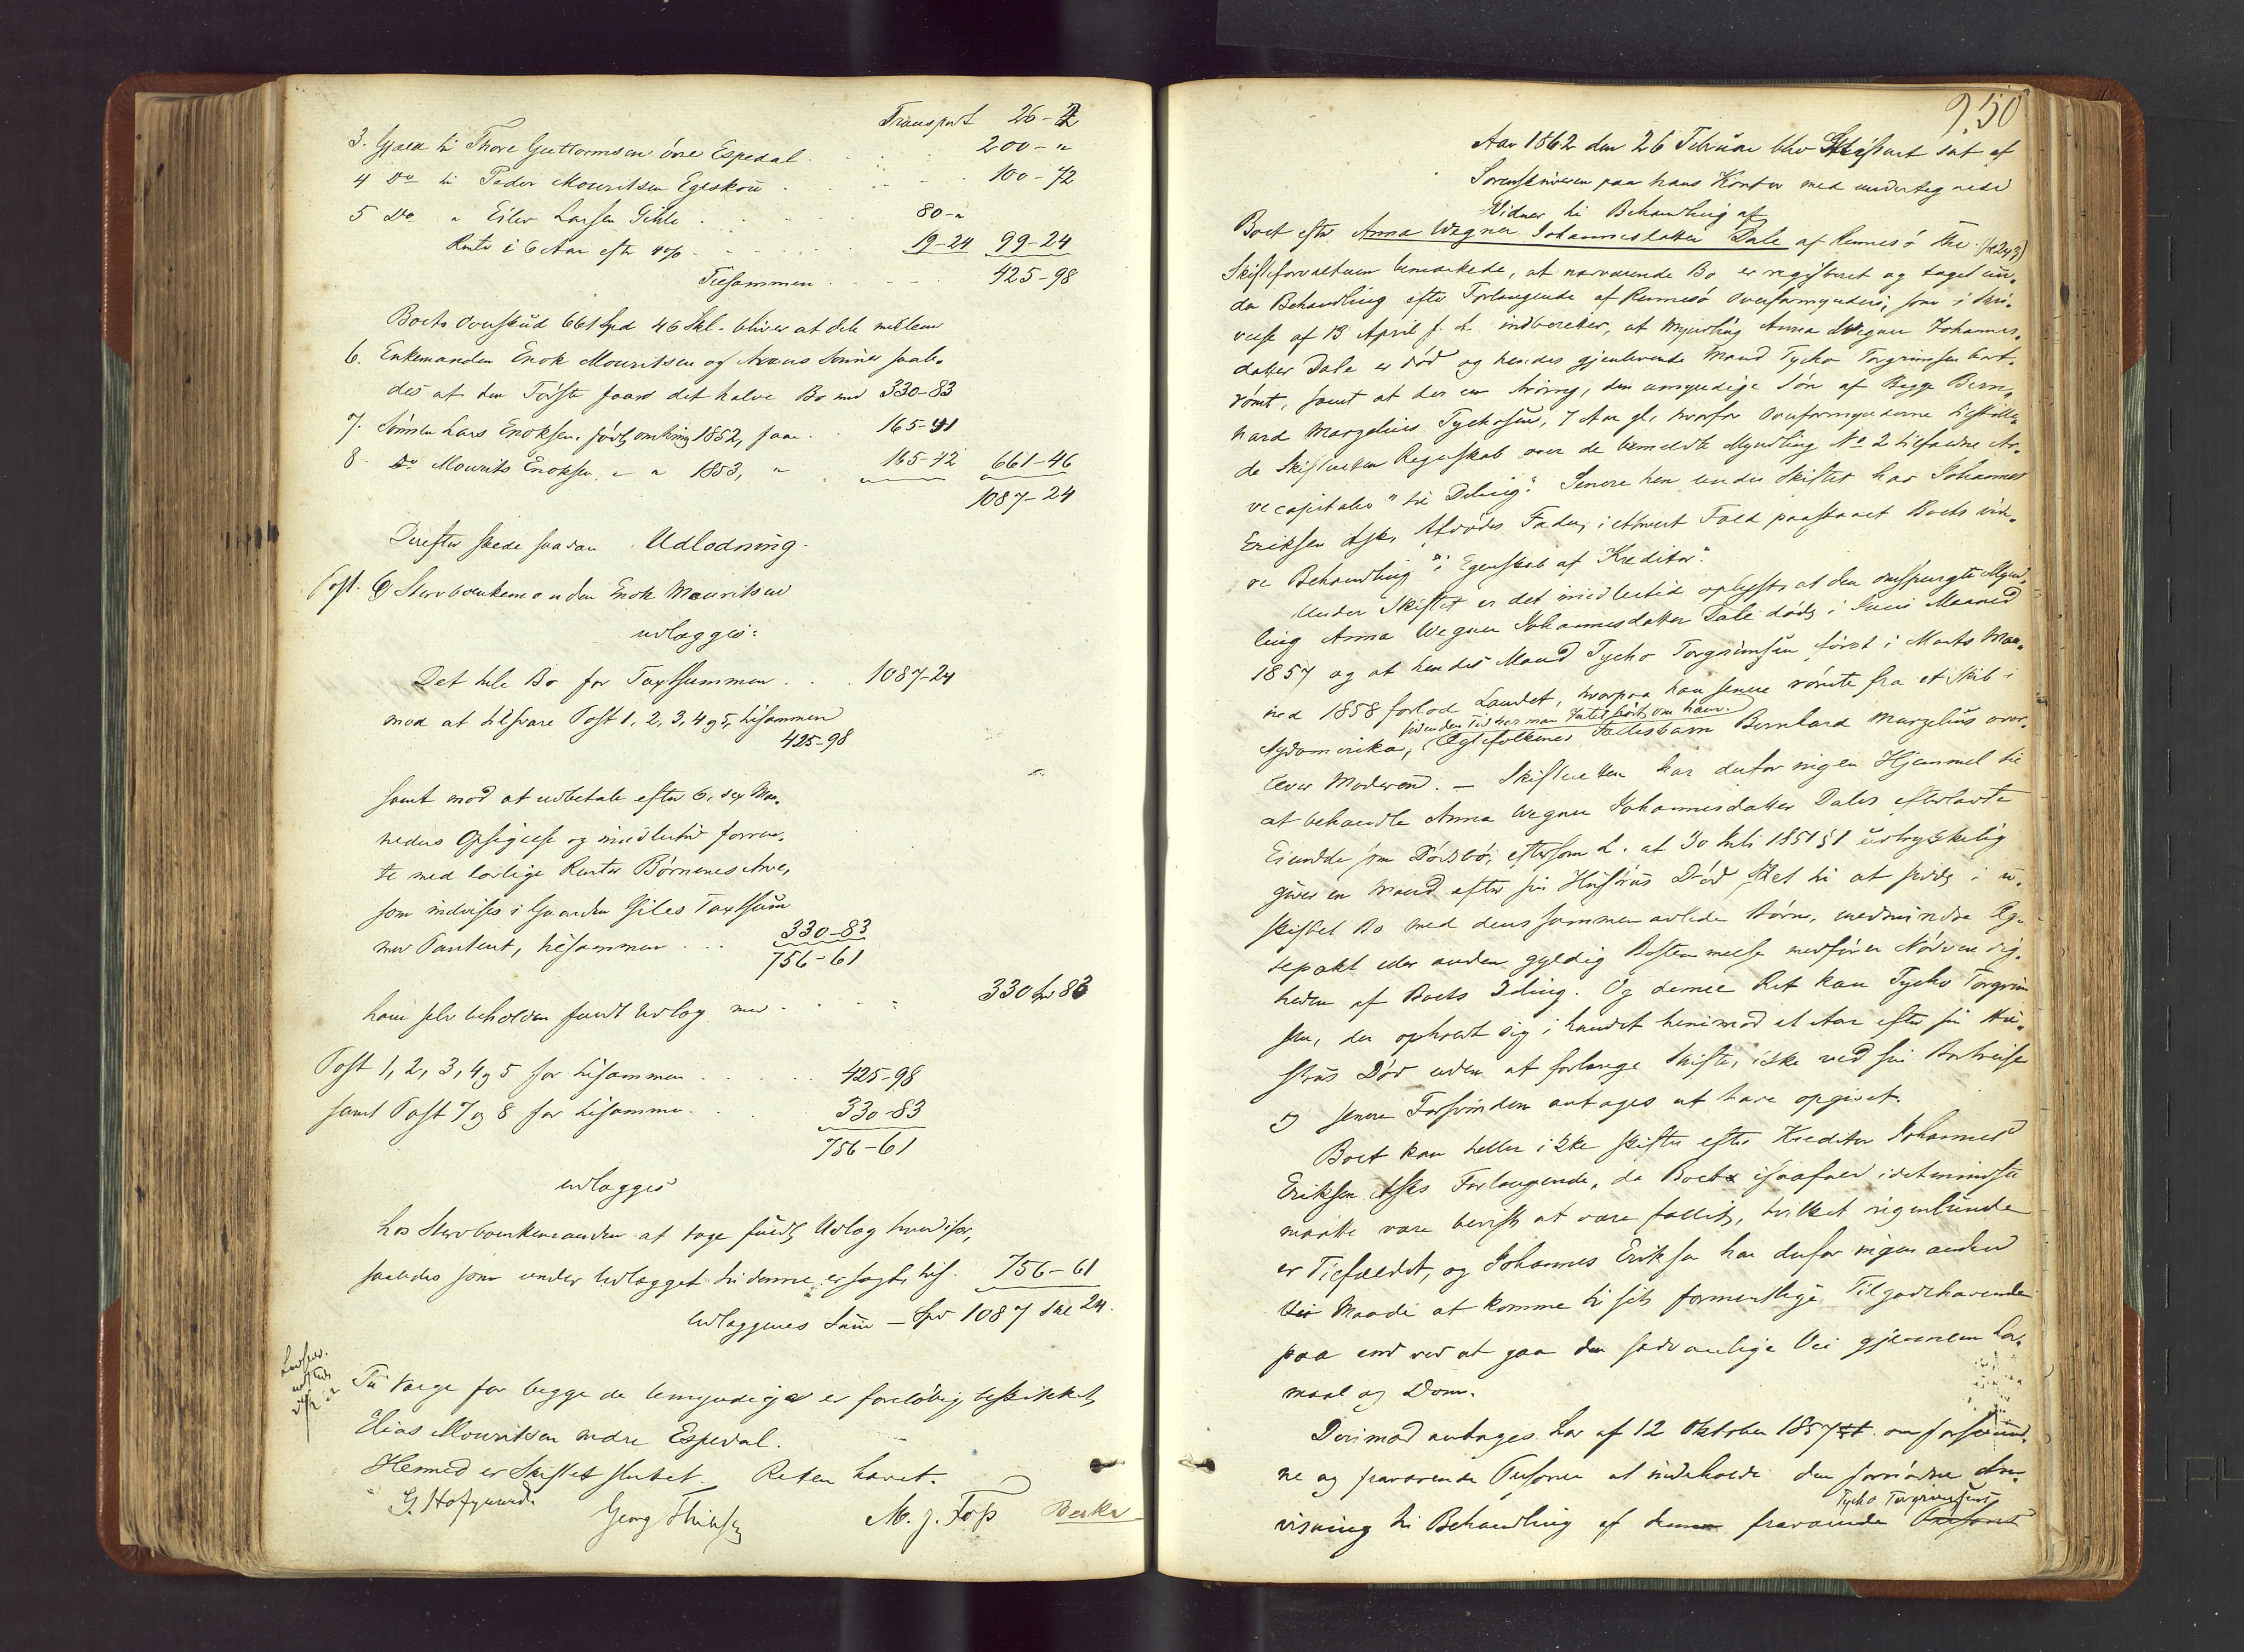 Transport 26-72
3. Gjæld til Thore Guttormsen övre Espedal . . . 200-"
4 Do til Peder Mouritsen Egeskou . . . 100-72
5 Do " Eiler Larsen Gihle . . . 80-"
Rente i 6 Aar efter 4% . . 19-24 99-24
Tilsammen . . . 425-98
Boets Overskud 661 Spd 46 Skl. bliver at dele mellem
6. Enkemanden Enok Mouritsen og Sönner saale-
des at den Förste faar det halve Bo med 330-83
7. Sönnen Lars Enoksen, födt omkring 1852, faar . . 165-41
8 Do Mourits Enoksen " " 1853, " 165-42 661-46
1087-24
Derefter skede saadan Udlodning.
Post. 6 Stervboenkemanden Enok Mouritsen
udlægges:
Det hele Bo for Taxtsummen . . . 1087-24
mod at tilsvare Post 1, 2, 3, 4 og 5, tilsammen
425-98
samt mod at udbetale efter 6, sex Maa-
neders Opsigelse og imidlertid forren-
te med lovlige Renter Börnenes Arve,
som indvises i Gaarden Giles Taxtsum
med Panteret, tilsammen . . . 330-83
756-61
ham selv beholden fuldt Udlæg med . . . 330 Spd 83
Post 1, 2, 3, 4 og 5 for tilsammen . . . 425-98
samt Post 7 og 8 for tilsammen . . . 330-83
756-61
udlægges
hos Stervboenkemanden at tage fuldt Udlæg hver især,
saaledes som under Udlægget til denne er sagt, tils. 756-61
Udlæggenes Sum — Spd 1087 Skl 24.
Til Værge for begge de Umyndige er foreløbig beskikket
Elias Mouritsen nedre Espedal.
Hermed er Skiftet sluttet. Retten hævet.
G. Hofgaard. Georg M. J. Foss
950
Aar 1862 den 26 Februar blev Skifteret sat af
Sorenskriveren paa hans Kontor med undertegnede
Vidner til Behandling af
Boet efter Anna Wegner Johannesdatter Dale af Rennesö
Skifteforvalteren bemærkede, at nærværende Bo er registreret og taget un-
der Behandling efter Forlangende af Rennesö Overformynderi, som i Skri-
velse af 13 April f. A. indberetter, at Myndling Anna Wegner Johannes-
datter Dale er död og hendes gjenlevende Mand Tycho Torgrimsen bort-
römt, samt at der er Arving, den umyndige Sön af Begge Bern-
hard Marzelius Tychosen, 7 Aar gl., hvorfor Overformynderne tilstille-
de Skifteretten Regnskab over de bemeldte Myndling No 2 tilfaldne Ar-
vecapitaler "til Deling". Senere hen under Skiftet har Johannes
Eriksen Ask, Afdödes Fader, i ethvert Fald paastaaet Boets vide-
re Behandling "i Egenskab af Kreditor".
Under Skiftet er det imidlertid oplyst, at den omspurgte Mynd-
ling Anna Wegner Johannesdatter Dale döde i Juni Maaned
1857 og at hendes Mand Tycho Torgrimsen först i Marts Maa-
ned 1858 forlod Landet, hvorpaa han senere römte fra et Skib i
siden den Tid har man Intet hört om ham.
Sydamerika; Ægtefolkenes Fællesbarn Bernhard Marzelius over-
lever Moderen. — Skifteretten har derfor ingen Hjemmel til
at behandle Anna Wegner Johannesdatter Dales efterladte
Eiendele som Dödsbo, eftersom L. af 30 Juli 1851 § 1 udtrykkelig
giver en Mand efter sin Hustrus Död Ret til at sidde i u-
skiftet Bo med deres sammenavlede Börn, medmindre Æg-
tepakt eller anden gyldig Bestemmelse medförer Nödvendig-
heden af Boets Deling. Og denne Ret kan Tycho Torgrim-
sen, der opholdt sig i Landet henimod et Aar efter sin Hu-
strus Död uden at forlange Skifte, ikke ved sin Bortreise
og senere Forsvinden antages at have opgivet.
Boet kan heller ikke skiftes efter Kreditor Johannes
Eriksen Asks Forlangende, da Boet isaafald idetmindste
maatte være bevist at være fallit, hvilket ingenlunde
er Tilfældet, og Johannes Eriksen har derfor ingen anden
Maade at komme til sit formentlige Tilgodehavende
paa end ved at gaa den sædvanlige Vei gjennem Lov-
maal og Dom.
Derimod antages Lov af 12 Oktober 1857 om forsvund-
ne og fraværende Personer at indeholde den fornödne An-
Tycho Torgrimsens
visning til Behandling af fraværende